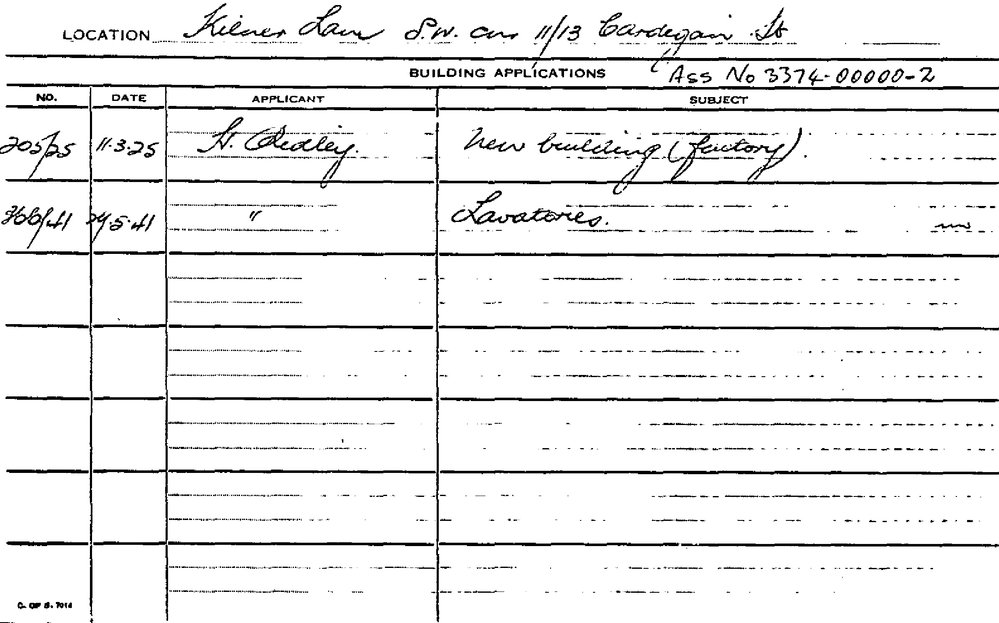 LOCATION Kilner Lane S.W. cnr 11/13 Cardigan St
BUILDING APPLICATIONS Ass No 3374-00000-2
NO. DATE APPLICANT SUBJECT
205/25 11.3.25 H. Dedley. New building (factory).
/41 .5.41 " Lavatories.
C. OF S. 7014